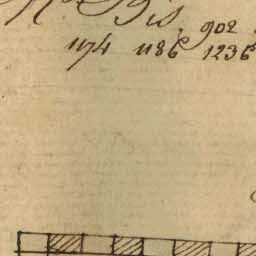 Bis
902
1174 1186 1236